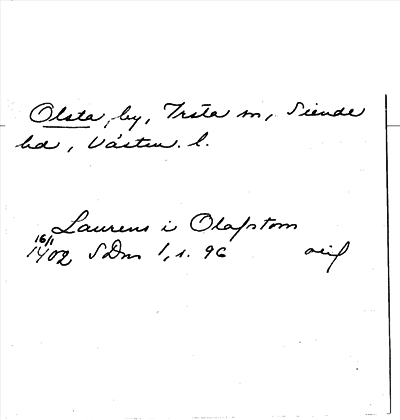 Olsta, by, Irsta sn, Siende
hd, Västm. l.
Laurens i Olafstom
16/1
1402 SDns 1, s. 96 orig